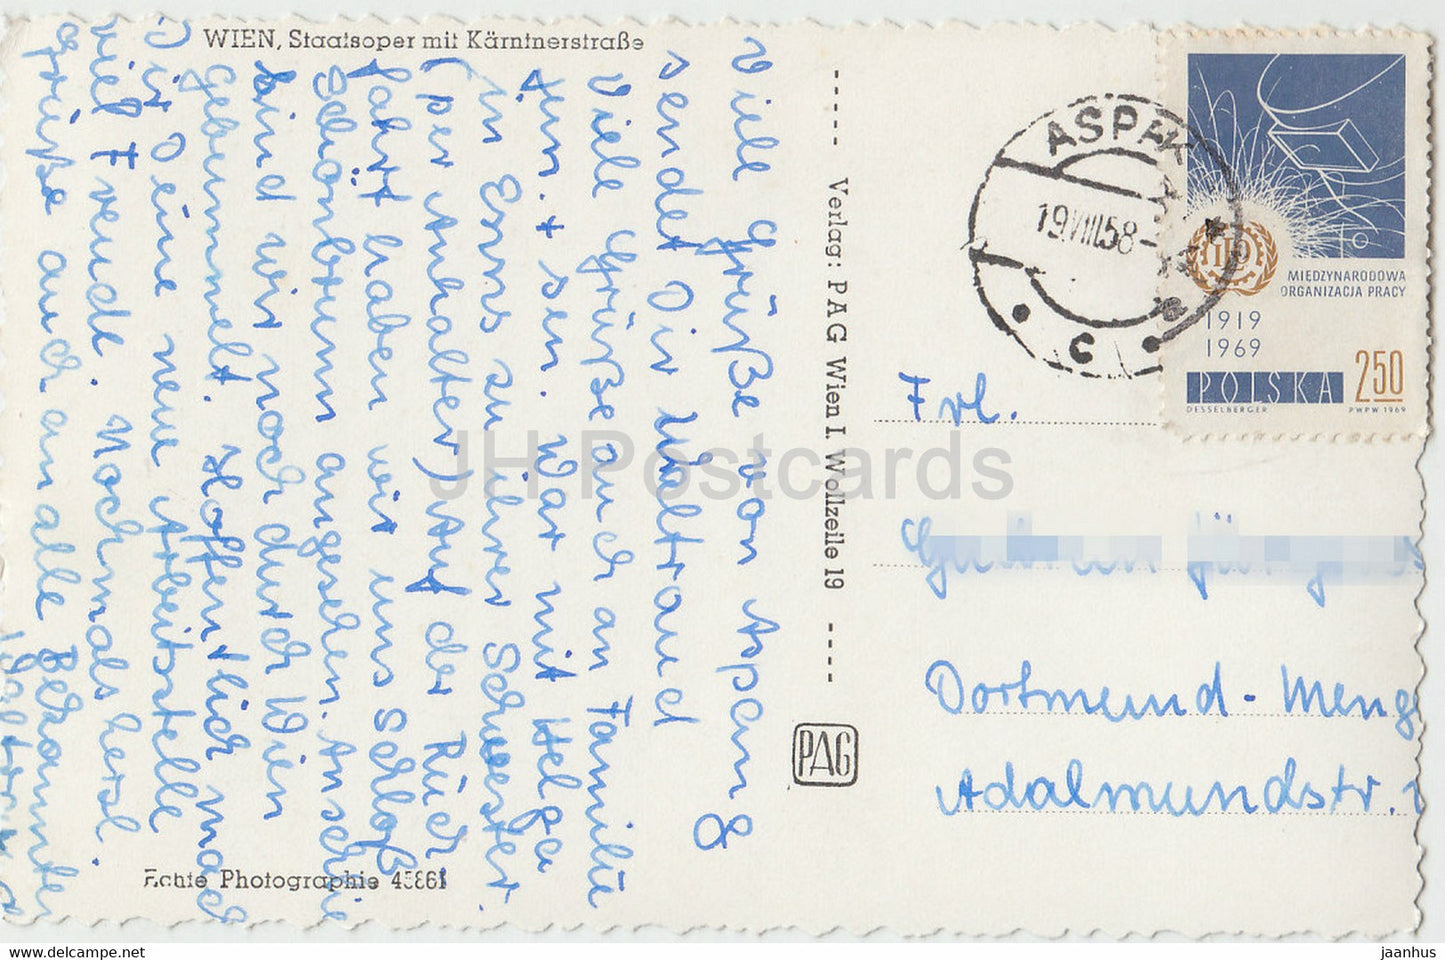 WIEN, Staatsoper mit Kärntnerstraße
Viele Grüße von Aspang
sendet Dir Waltraud
Viele Grüße auch an Familie
Jün. + sen. War mit Helga
in Enns zu ihrer Schwester.
(per Anhalter) Auf der Rück
fahrt haben wir uns Schloß
Schönbrunn angesehen. Anschlie
sind wir noch durch Wien
gebummelt. Hoffentlich mach
Dir Deine neue Arbeitsstelle
viel Freude. Nochmals herzl.
Grüße auch an alle Bekannten
Echte Photographie 45861
Verlag: PAG Wien I. Wollzeile 19
PAG
ASPANG
19.VIII.58
c
MIĘDZYNARODOWA
ORGANIZACJA PRACY
1919
1969
POLSKA 250
DESSELBERGER PWPW 1969
Frl.
Dortmund-Meng
Adalmundstr.
JH Postcards
www.hippostcard.com
jaanhus